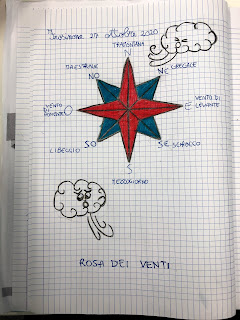 27 ottobre 2020
TRAMONTANA
N
MAESTRALE
NO
NE GRECALE
VENTO
O
E VENTO DI
LEVANTE
LIBECCIO SO
SE SCIROCCO
S
MEZZOGIORNO
ROSA DEI VENTI